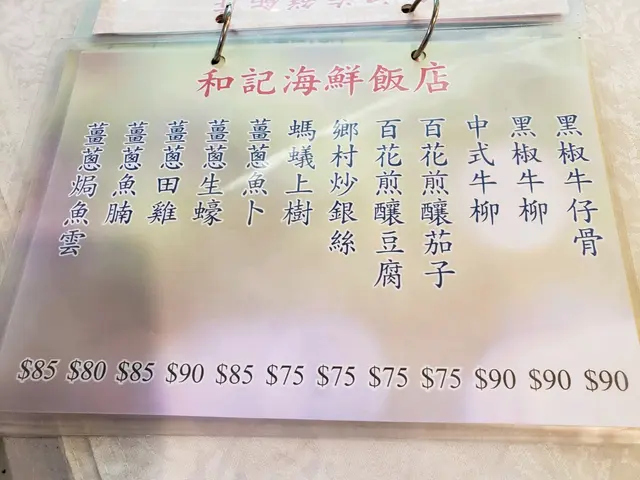 和記海鮮飯店
黑椒牛仔骨
黑椒牛柳
中式牛柳
百花煎釀茄子
百花煎釀豆腐
鄉村炒銀絲
螞蟻上樹
薑蔥魚卜
薑蔥生蠔
薑蔥田雞
薑蔥魚腩
薑蔥焗魚雲
$85 $80 $85 $90 $85 $75 $75 $75 $75 $90 $90 $90